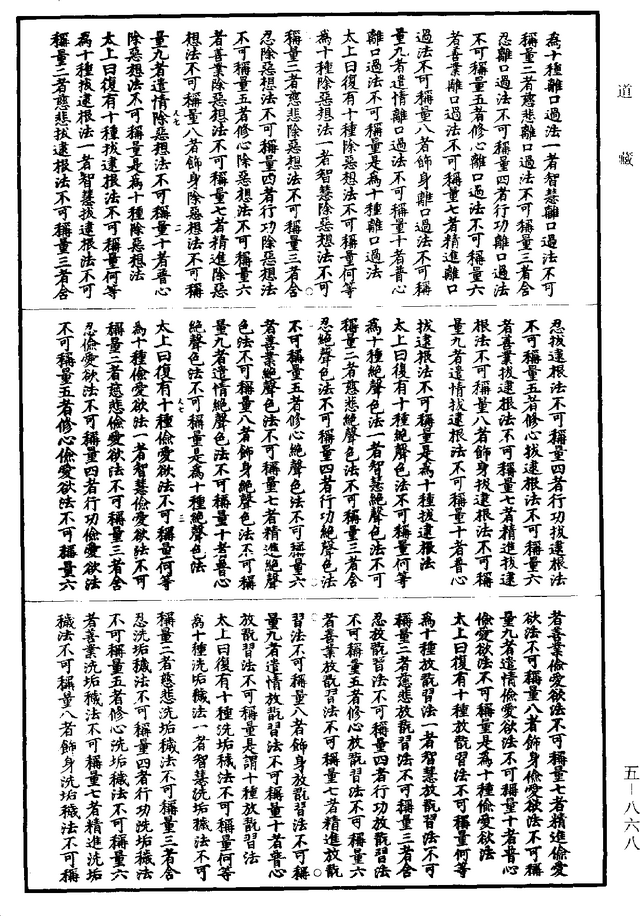 道藏
為十種離口過法一者智慧離口過法不可
稱量二者慈悲離口過法不可稱量三者含
忍離口過法不可稱量四者行功離口過法
不可稱量五者修心離口過法不可稱量六
者善業離口過法不可稱量七者精進離口
過法不可稱量八者飾身離口過法不可稱
量九者遣情離口過法不可稱量十者普心
離口過法不可稱量是為十種離口過法
太上曰復有十種除惡想法不可稱量何等
為十種除惡想法一者智慧除惡想法不可
稱量二者慈悲除惡想法不可稱量三者含
忍除惡想法不可稱量四者行功除惡想法
不可稱量五者修心除惡想法不可稱量六
者善業除惡想法不可稱量七者精進除惡
想法不可稱量八者飾身除惡想法不可稱
量九者遣情除惡想法不可稱量十者普心
除惡想法不可稱量是為十種除惡想法
太上曰復有十種拔逮根法不可稱量何等
為十種拔逮根法一者智慧拔逮根法不可
稱量二者慈悲拔逮根法不可稱量三者含
忍拔逮根法不可稱量四者行功拔逮根法
不可稱量五者修心拔逮根法不可稱量六
者善業拔逮根法不可稱量七者精進拔逮
根法不可稱量八者飾身拔逮根法不可稱
量九者遣情拔逮根法不可稱量十者普心
拔逮根法不可稱量是為十種拔逮根法
太上曰復有十種絕聲色法不可稱量何等
為十種絕聲色法一者智慧絕聲色法不可
稱量二者慈悲絕聲色法不可稱量三者含
忍絕聲色法不可稱量四者行功絕聲色法
不可稱量五者修心絕聲色法不可稱量六
者善業絕聲色法不可稱量七者精進絕聲
色法不可稱量八者飾身絕聲色法不可稱
量九者遣情絕聲色法不可稱量十者普心
絕聲色法不可稱量是為十種絕聲色法
太上曰復有十種儉愛欲法不可稱量何等
為十種儉愛欲法一者智慧儉愛欲法不可
稱量二者慈悲儉愛欲法不可稱量三者含
忍儉愛欲法不可稱量四者行功儉愛欲法
不可稱量五者修心儉愛欲法不可稱量六
者善業儉愛欲法不可稱量七者精進儉愛
欲法不可稱量八者飾身儉愛欲法不可稱
量九者遣情儉愛欲法不可稱量十者普心
儉愛欲法不可稱量是為十種儉愛欲法
太上曰復有十種放翫習法不可稱量何等
為十種放翫習法一者智慧放翫習法不可
稱量二者慈悲放翫習法不可稱量三者含
忍放翫習法不可稱量四者行功放翫習法
不可稱量五者修心放翫習法不可稱量六
者善業放翫習法不可稱量七者精進放翫
習法不可稱量八者飾身放翫習法不可稱
量九者遣情放翫習法不可稱量十者普心
放翫習法不可稱量是謂十種放翫習法
太上曰復有十種洗垢穢法不可稱量何等
為十種洗垢穢法一者智慧洗垢穢法不可
稱量二者慈悲洗垢穢法不可稱量三者含
忍洗垢穢法不可稱量四者行功洗垢穢法
不可稱量五者修心洗垢穢法不可稱量六
者善業洗垢穢法不可稱量七者精進洗垢
穢法不可稱量八者飾身洗垢穢法不可稱
五-八六八